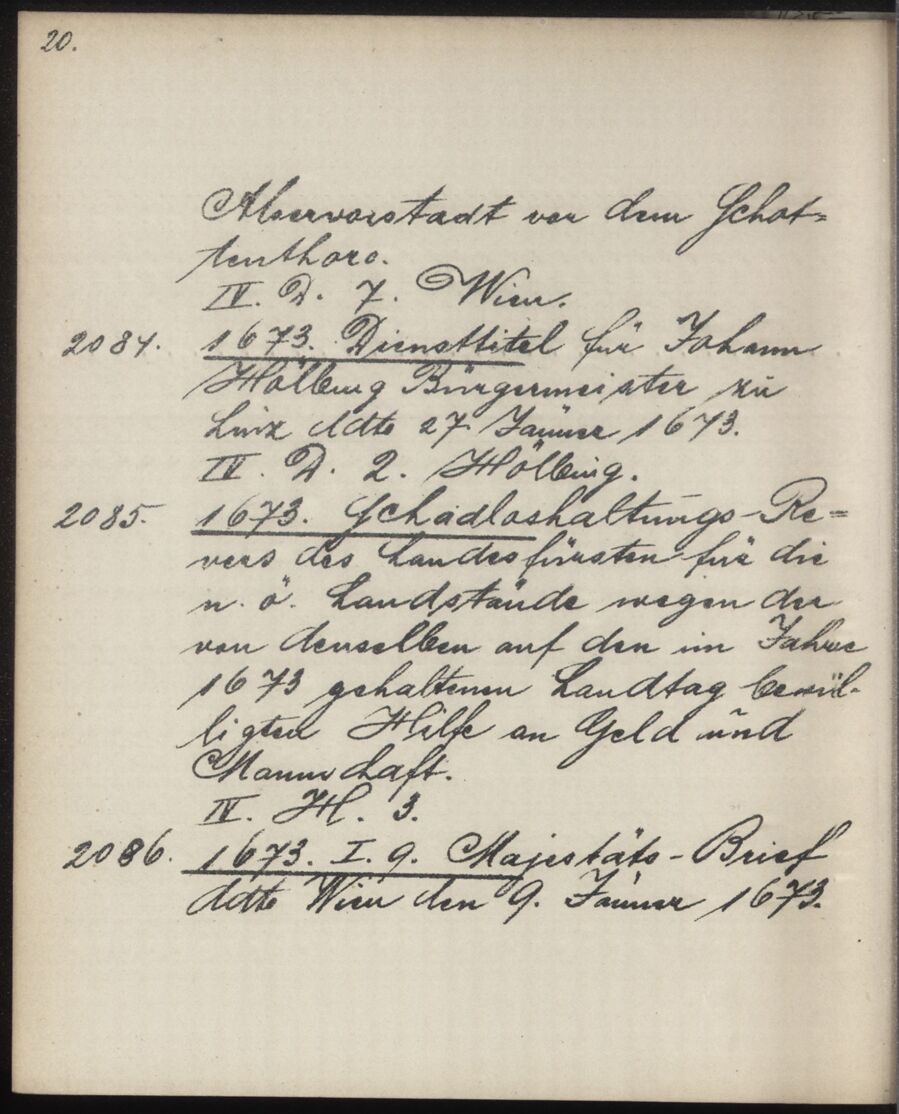 20.
Alservorstadt vor dem Schot=
tenthore.
IV. D. 7. Wien.
2084. 1673. Diensttitel für Johann
Hölbing Bürgermeister zu
Linz ddto 27. Jänner 1673.
IV. D. 2. Hölbing.
2085. 1673. Schadloshaltungs-Re=
vers des Landesfürsten für die
n. ö. Landstände wegen der
von denselben auf den im Jahre
1673 gehaltenen Landtag bewil-
ligten Hilfe an Geld und
Mannschaft.
IV. H. 3.
2086. 1673. I. 9. Majestäts-Brief
ddto Wien den 9. Jänner 1673.